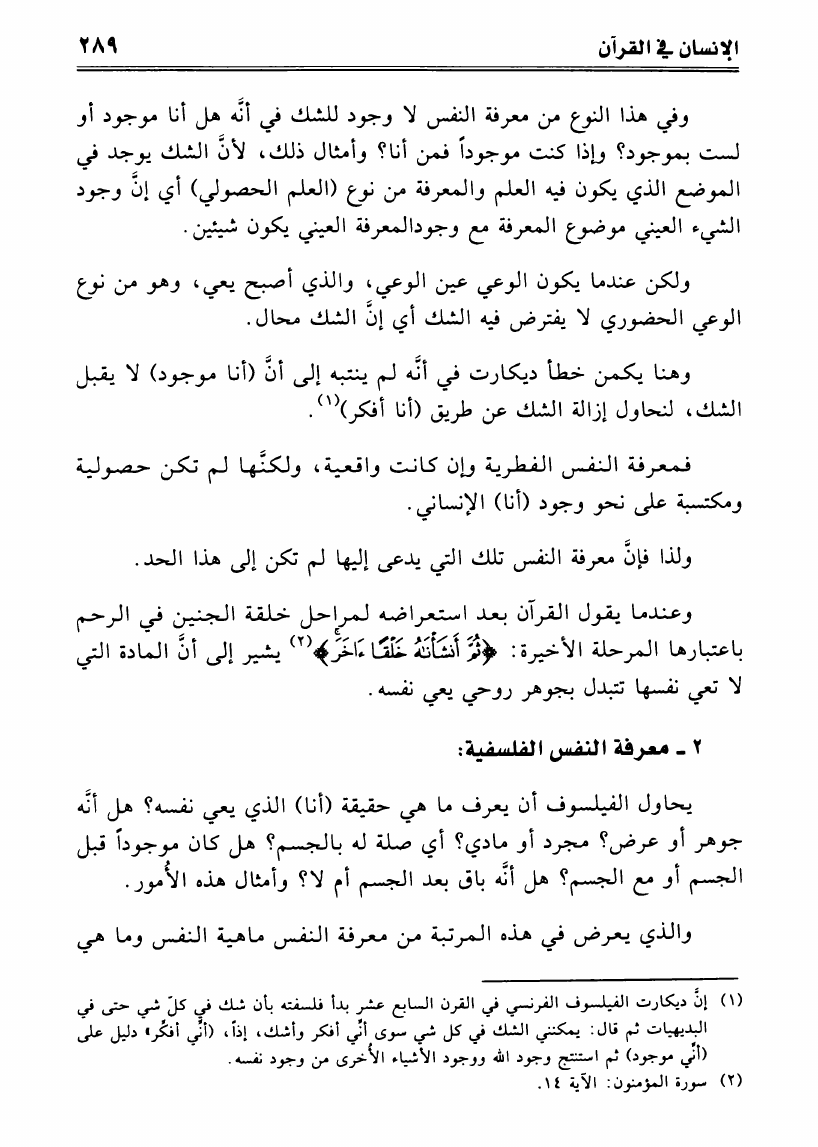 الإنسان في القرآن ٢٨٩
وفي هذا النوع من معرفة النفس لا وجود للشك في أنَّه هل أنا موجود أو
لست بموجود؟ وإذا كنت موجوداً فمن أنا؟ وأمثال ذلك، لأنَّ الشك يوجد في
الموضع الذي يكون فيه العلم والمعرفة من نوع (العلم الحصولي) أي إنَّ وجود
الشيء العيني موضوع المعرفة مع وجودالمعرفة العيني يكون شيئين.
ولكن عندما يكون الوعي عين الوعي، والذي أصبح يعي، وهو من نوع
الوعي الحضوري لا يفترض فيه الشك أي إنَّ الشك محال.
وهنا يكمن خطأ ديكارت في أنَّه لم ينتبه إلى أنَّ (أنا موجود) لا يقبل
الشك، لنحاول إزالة الشك عن طريق (أنا أفكر)(١).
فمعرفة النفس الفطرية وإن كانت واقعية، ولكنَّها لم تكن حصولية
ومكتسبة على نحو وجود (أنا) الإنساني.
ولذا فإنَّ معرفة النفس تلك التي يدعى إليها لم تكن إلى هذا الحد.
وعندما يقول القرآن بعد استعراضه لمراحل خلقة الجنين في الرحم
باعتبارها المرحلة الأخيرة: ﴿ثُمَّ أَنشَأْنَٰهُ خَلْقًا ءَاخَرَۚ﴾(٢) يشير إلى أنَّ المادة التي
لا تعي نفسها تتبدل بجوهر روحي يعي نفسه.
٢ ـ معرفة النفس الفلسفية:
يحاول الفيلسوف أن يعرف ما هي حقيقة (أنا) الذي يعي نفسه؟ هل أنَّه
جوهر أو عرض؟ مجرد أو مادي؟ أي صلة له بالجسم؟ هل كان موجوداً قبل
الجسم أو مع الجسم؟ هل أنَّه باق بعد الجسم أم لا؟ وأمثال هذه الأُمور.
والذي يعرض في هذه المرتبة من معرفة النفس ماهية النفس وما هي
(١) إنَّ ديكارت الفيلسوف الفرنسي في القرن السابع عشر بدأ فلسفته بأن شك في كلّ شي حتى في
البديهيات ثم قال: يمكنني الشك في كل شي سوى أنّي أفكر وأشك، إذاً، (أنّي أفكّر» دليل على
(أنّي موجود) ثم استنتج وجود الله ووجود الأشياء الأُخرى من وجود نفسه.
(٢) سورة المؤمنون: الآية ١٤.